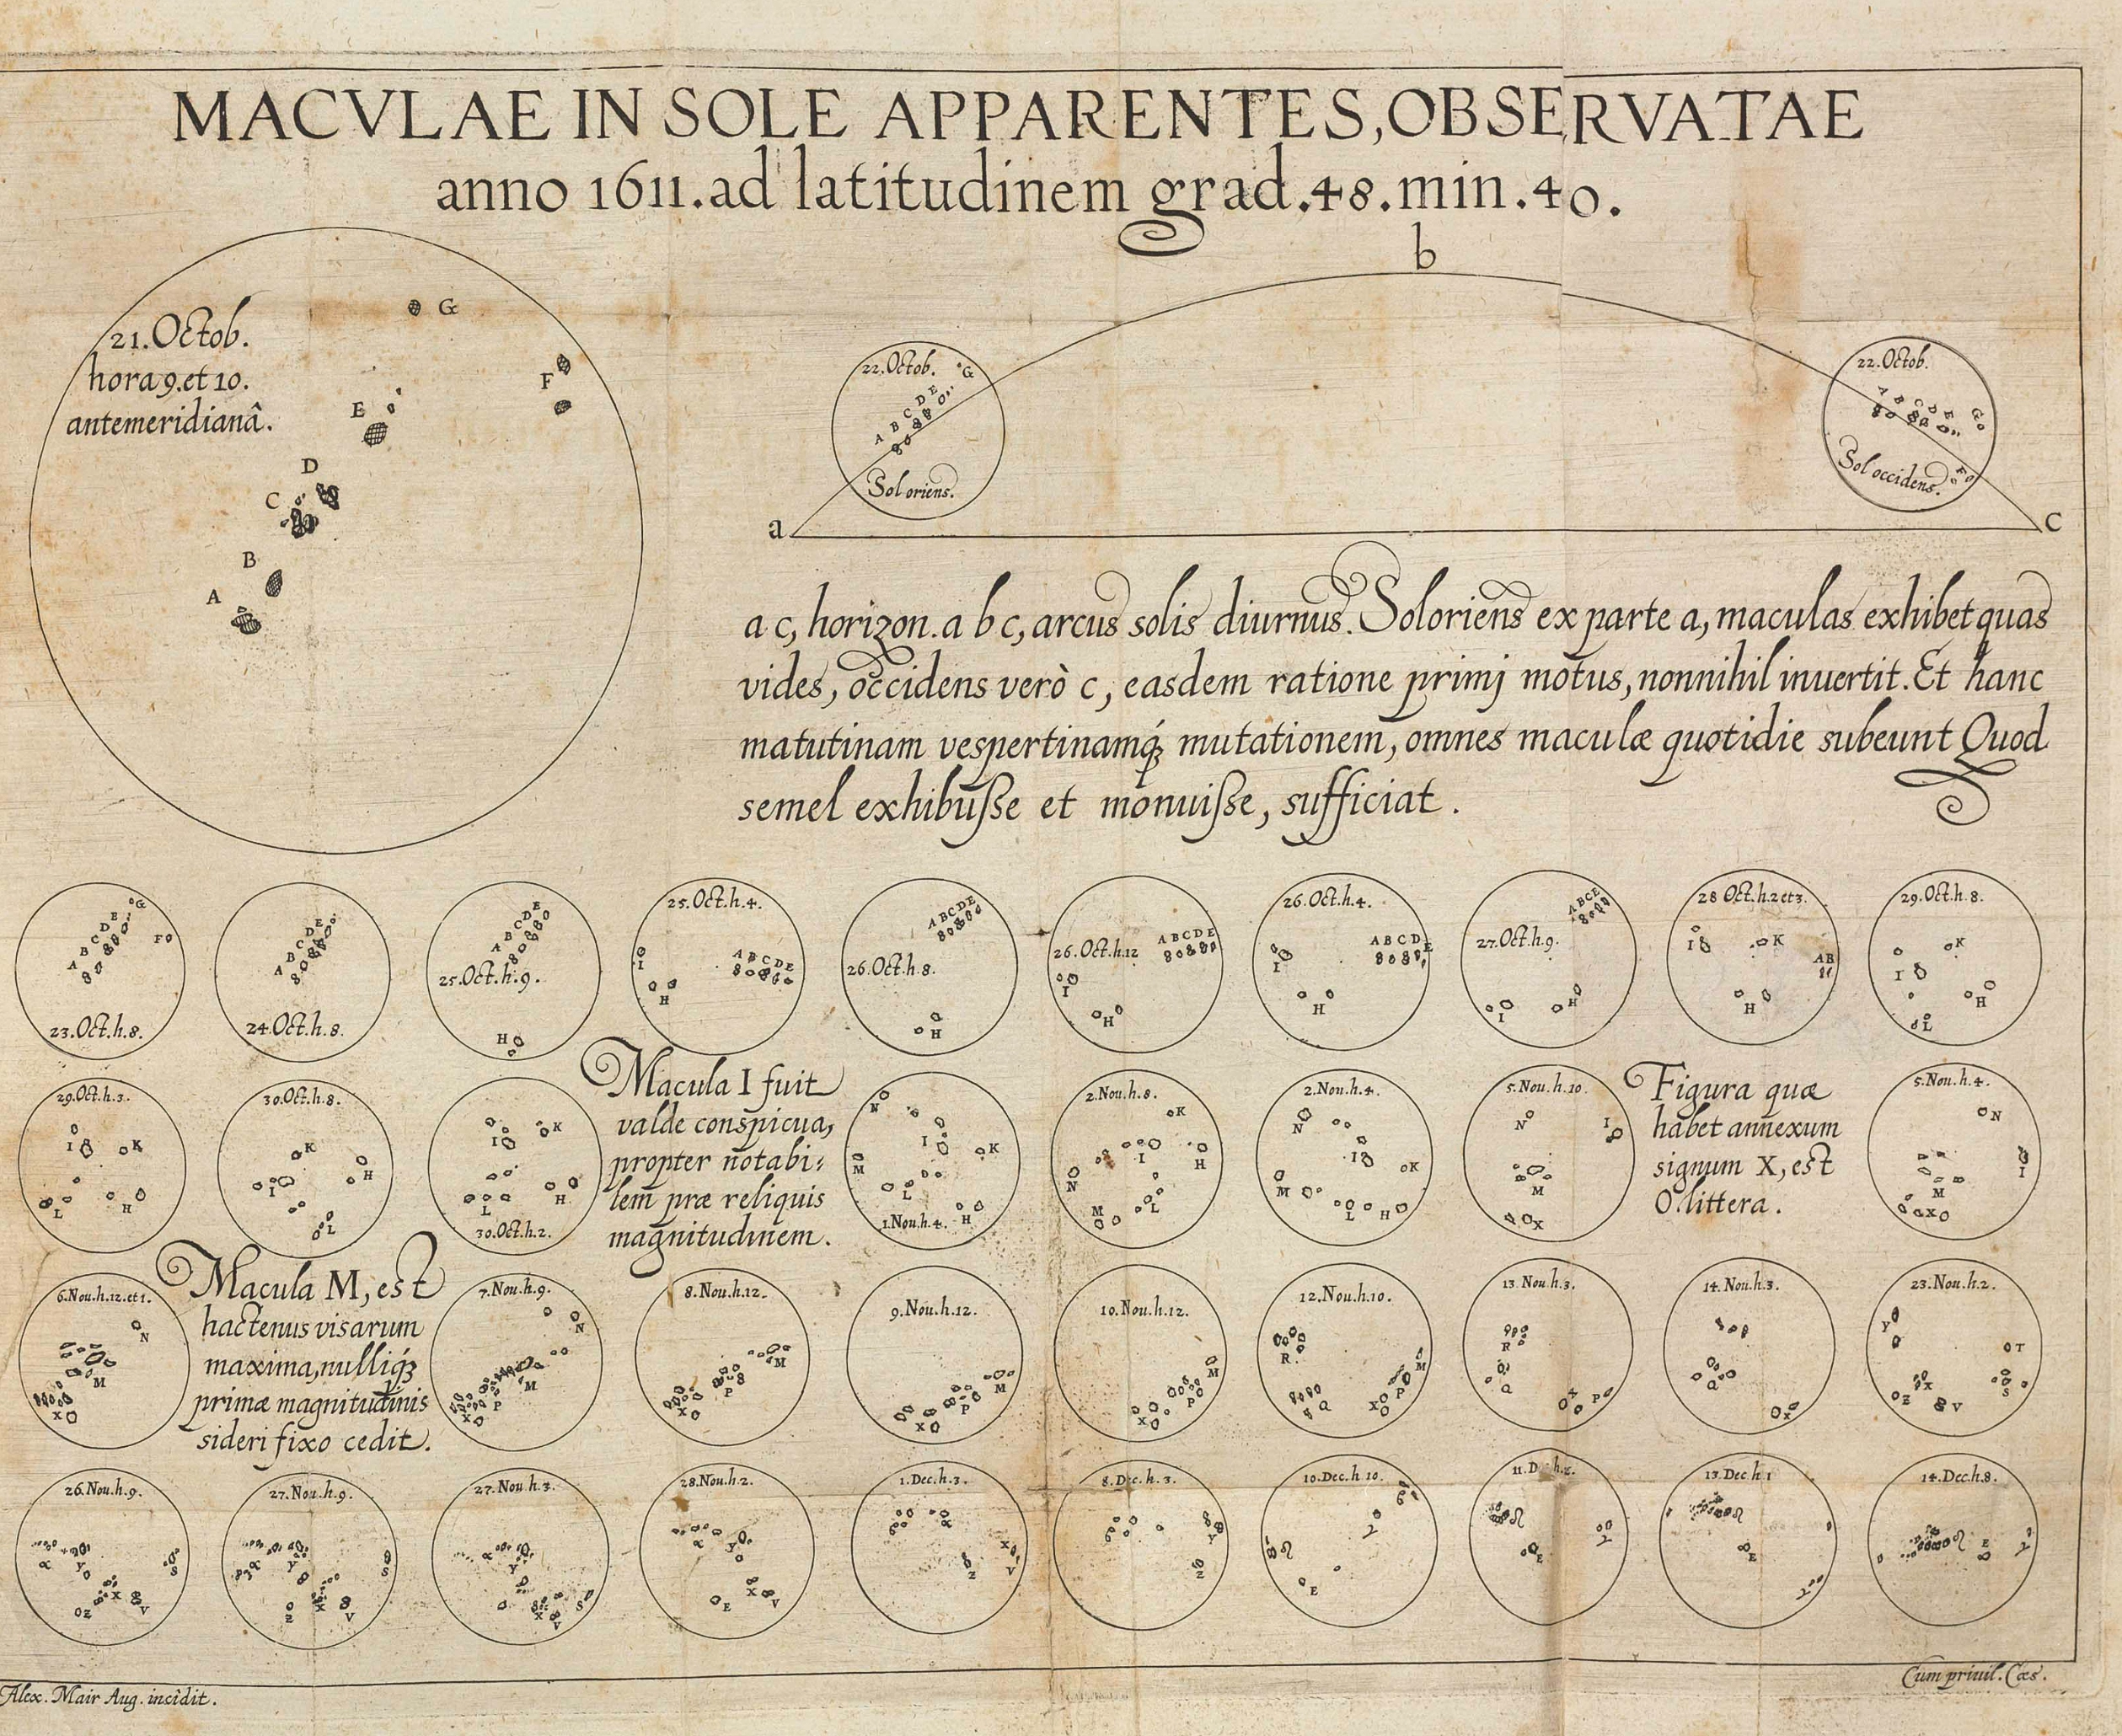 MACVLAE IN SOLE APPARENTES, OBSERVATAE
anno 1611. ad latitudinem grad. 48. min. 40.
b
21. Octob.
hora 9. et 10.
antemeridianâ.
G
F
E
D
C
B
A
22. Octob.
G
A B C D E
Sol oriens.
22. Octob.
A B C D E G
F
Sol occidens.
a
c
a c, horizon. a b c, arcus solis diurnus. Sol oriens ex parte a, maculas exhibet quas
vides, occidens verò c, easdem ratione primj motus, nonnihil inuertit. Et hanc
matutinam vespertinamq́; mutationem, omnes maculæ quotidie subeunt Quod
semel exhibuſse et monuiſse, sufficiat.
G
A B C D E
F
23. Oct. h. 8.
A B C D E
24. Oct. h. 8.
A B C D E
25. Oct. h. 9.
H
25. Oct. h. 4.
I
A B C D E
H
A B C D E
26. Oct. h. 8.
H
A B C D E
26. Oct. h. 12
I
H
26. Oct. h. 4.
A B C D E
I
H
A B C E
27. Oct. h. 9.
I
H
28 Oct. h. 2 et 3.
I
K
A B
H
29. Oct. h. 8.
K
I
H
L
29. Oct. h. 3.
I
K
L
H
30. Oct. h. 8.
K
H
I
L
I
K
L
H
30. Oct. h. 2.
Macula I fuit
valde conspicua,
propter notabi:
lem præ reliquis
magnitudinem.
N
I
K
M
L
H
1. Nou. h. 4.
2. Nou. h. 8.
K
I
H
N
M
L
2. Nou. h. 4.
N
I
K
M
L
H
5. Nou. h. 10.
N
I
M
X
Figura quæ
habet annexum
signum X, est
O. littera.
5. Nou. h. 4.
N
I
M
X
6. Nou. h. 12. et 1.
N
M
X
Macula M, est
hactenus visarum
maxima, nulliq́;
primæ magnitudinis
sideri fixo cedit.
7. Nou. h. 9.
N
M
P
X
8. Nou. h. 12.
M
P
X
9. Nou. h. 12.
M
P
X
10. Nou. h. 12.
M
P
X
12. Nou. h. 10.
R
M
P
Q
X
13. Nou. h. 3.
R
Q
P
14. Nou. h. 3.
Q
X
23. Nou. h. 2.
Y
T
X
S
Z
V
26. Nou. h. 9.
α
Y
S
X
Z
V
27. Nou. h. 9.
α
Y
S
X
Z
V
27. Nou. h. 3.
α
Y
S
X
V
28. Nou. h. 2.
α
Y
X
E
V
1. Dec. h. 3.
α
X
Z
V
8. Dec. h. 3.
Y
Z
10. Dec. h 10.
E
11. D h. 2.
E
13. Dec h 1
E
14. Dec. h 8.
E
Alex. Mair Aug. incidit.
Cum priuil. Cæs.